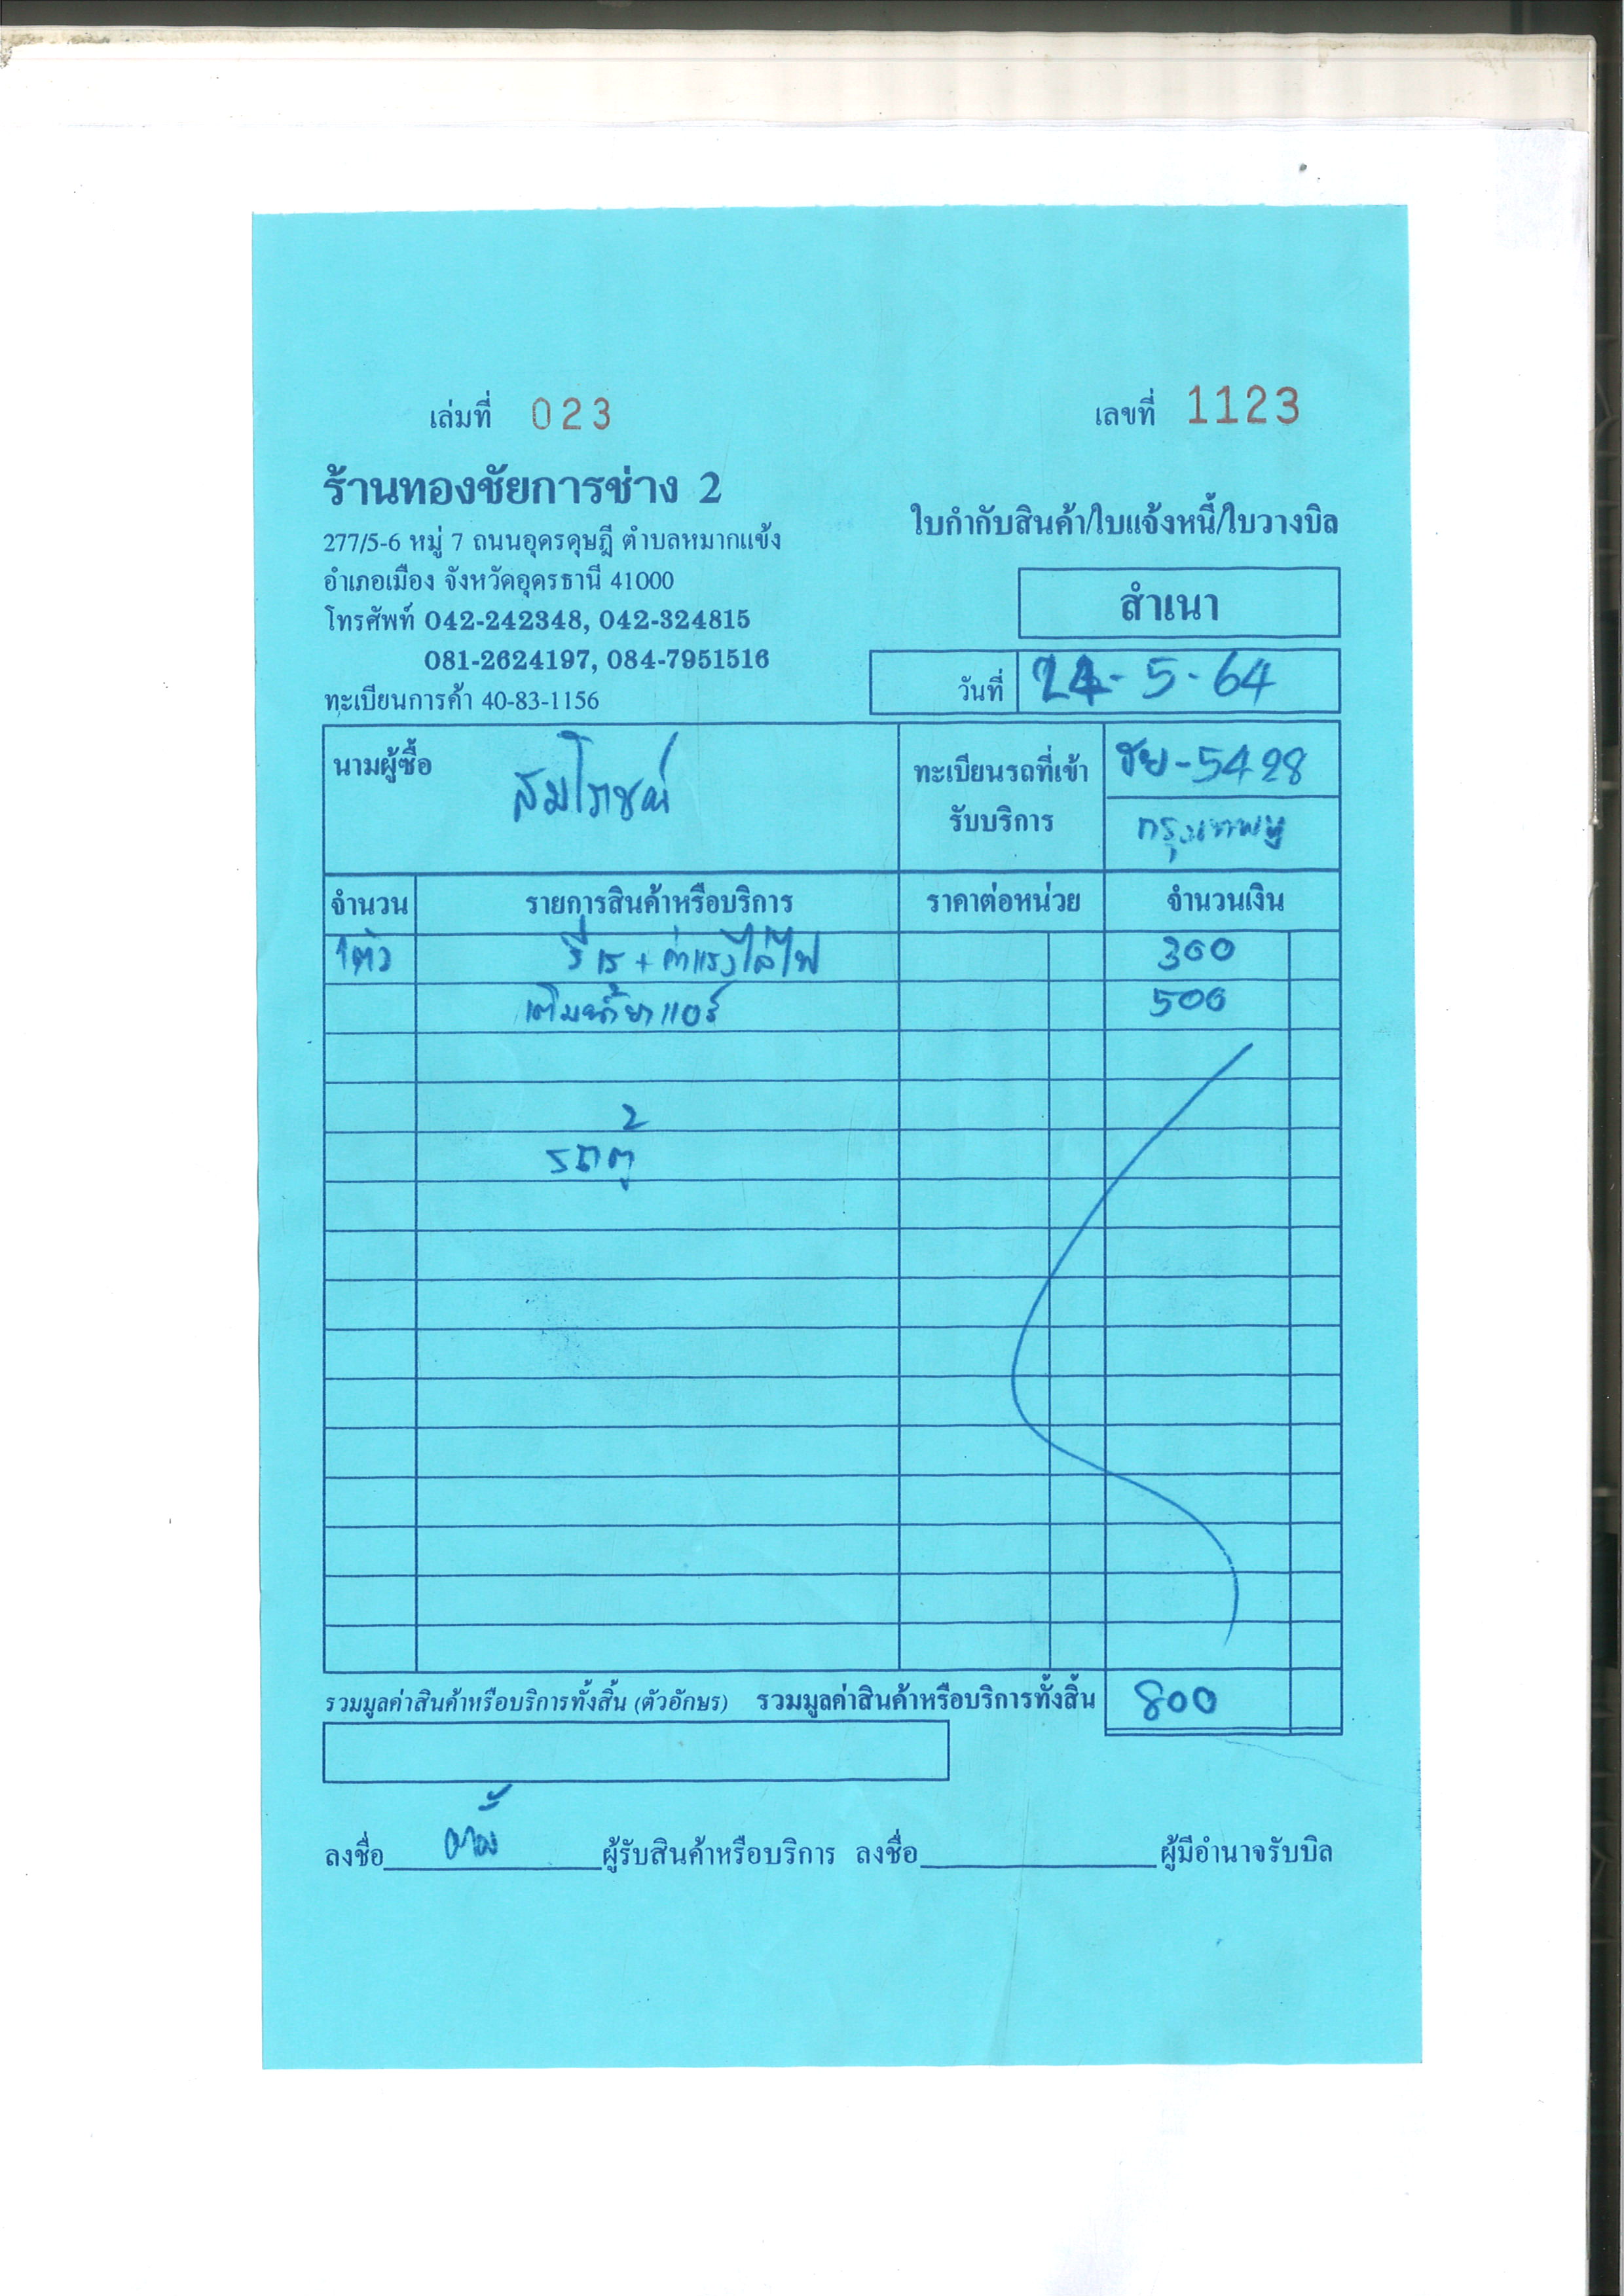 เล่มที่ 023
เลขที่ 1123
ร้านทองชัยการช่าง 2
277/5-6 หมู่ 7 ถนนอุดรดุษฎี ตำบลหมากแข้ง
อำเภอเมือง จังหวัดอุดรธานี 41000
โทรศัพท์ 042-242348, 042-324815
081-2624197, 084-7951516
ทะเบียนการค้า 40-83-1156
ใบกำกับสินค้า/ใบแจ้งหนี้/ใบวางบิล
สำเนา
วันที่ 24-5-64
นามผู้ซื้อ สมโภชน์
ทะเบียนรถที่เข้า
รับบริการ
-5428
กรุงเทพฯ
จำนวน รายการสินค้าหรือบริการ ราคาต่อหน่วย จำนวนเงิน
1ตัว รีเร + ค่าแรงไล่ไฟ 300
เติมน้ำยาแอร์ 500
รถตู้
รวมมูลค่าสินค้าหรือบริการทั้งสิ้น (ตัวอักษร) รวมมูลค่าสินค้าหรือบริการทั้งสิ้น 800
ลงชื่อ ผู้รับสินค้าหรือบริการ ลงชื่อ ผู้มีอำนาจรับบิล